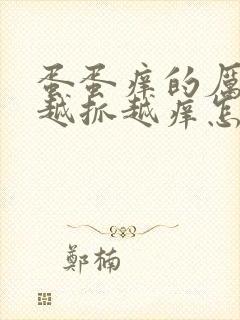 蛋蛋痒的厉
越抓越痒怎
鄭楠